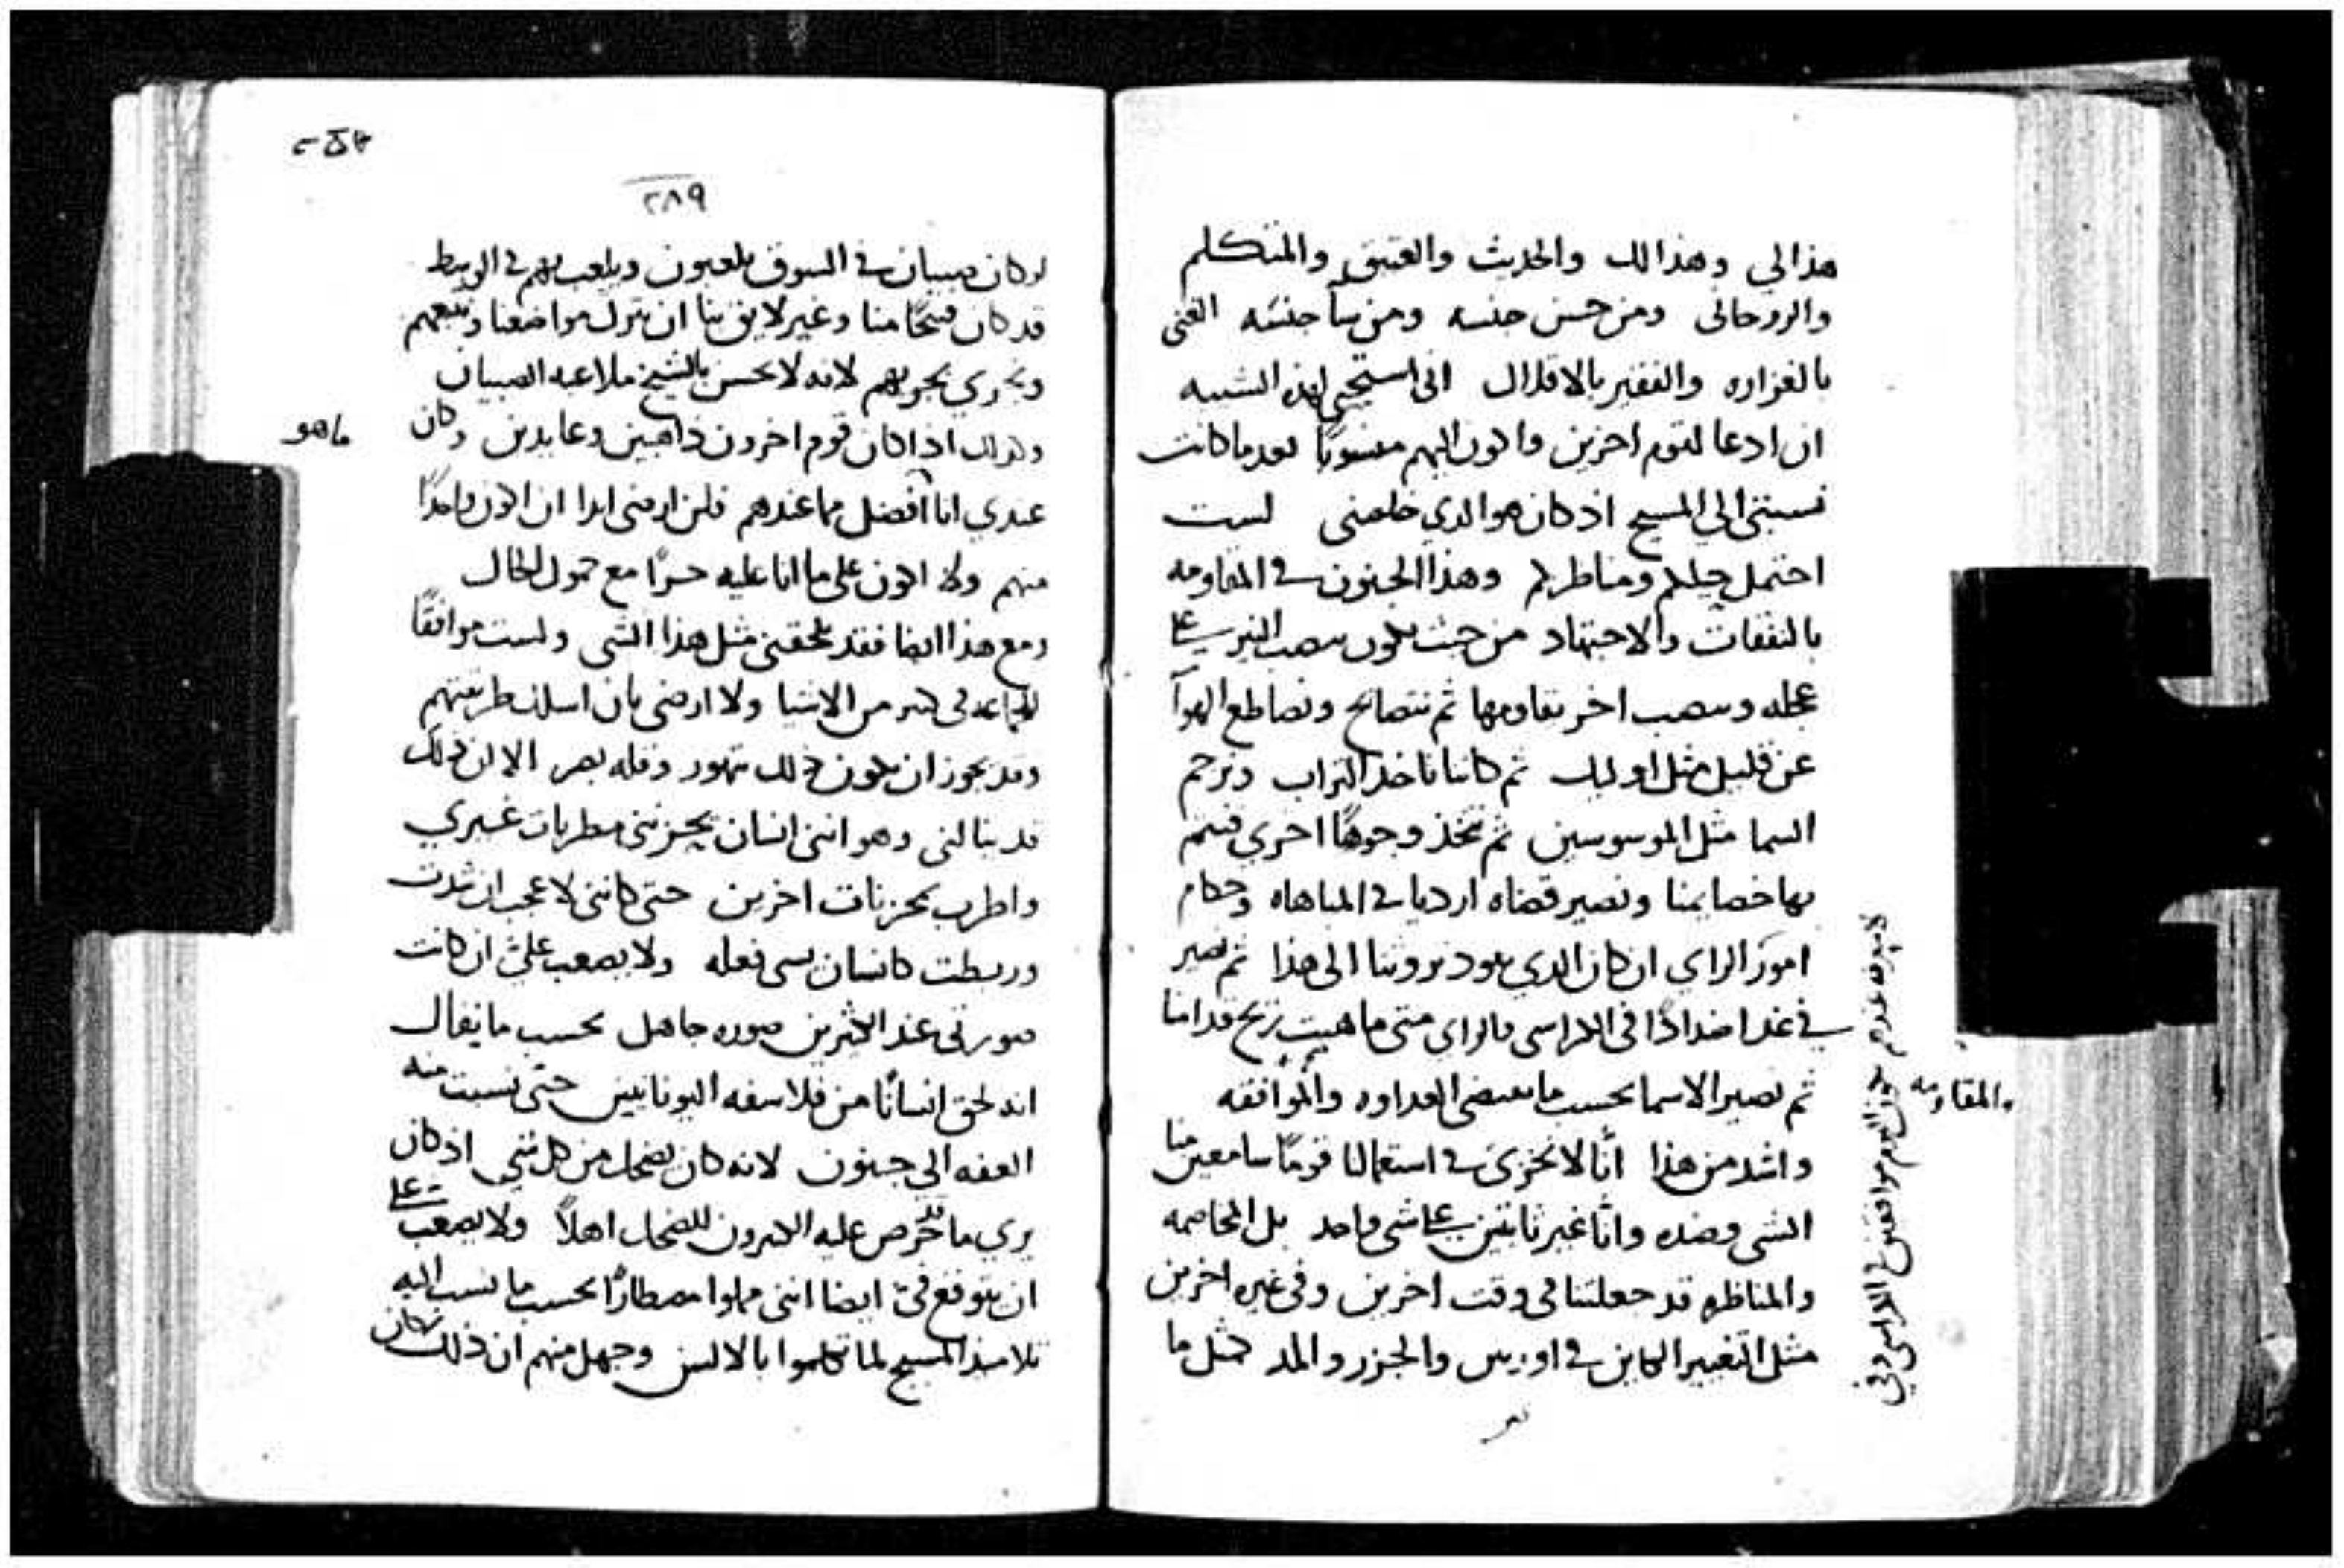 هذا لي وهذا لك والحديث والعتيق والمتكلم
والروحاني ومن حسن جنسه ومن سآ جنسه الغني
بالغزاره والفقير بالاقلال اني استحيي لهذه الشيبه
ان ادعا لقوم اخرين واكون اليهم منسوبًا بعد ما كانت
نسبتي الي المسيح اذ كان هو الدي خلصني لست
احتمل خيلكم ومناظركم وهذا الجنون في المقاومه
بالنفقات والاجتهاد من حيث يكون بعضنا
عجله وبعضنا اخر يقاومها ثم نتصايح ونصاطع الهوآ
عن قليل مثل اوليك ثم كاننا ناخذ التراب ونرجم
السما مثل الموسوسين ثم نتخذ وجوهًا اخري فنتم
بها خصايمنا ونصير قضاه ارديا في المباهاه وحكام
امور الراي ان كان الدي يعود بروتنا الى هذا ثم نصير
في غد اضدادًا في الكراسي والراي متى ما هبت ريح قدامنا
والمقاومه
ثم تصير الاسما بحسب ما تقتضي العداوه والموافقه
واشد من هذا أنا لا نخزى في استعمالنا قومًا سامعين منا
الشي وضده وانا غير ثابتين على شي واحد بل المخاصمه
والمناظره قد جعلتنا في وقت اخرين وفي غيره اخرين
مثل التغيير الكاين في اوربس والجزر والمد كمثل ما
٢٨٩
لو كان صبيان في السوق يلعبون ويلعب بهم في الوسط
قد كان قبيحًا منا وغير لايق بنا ان نترك مواضعنا ونتبعهم
ونجري بجريهم لانه لا يحسن بالشيخ ملاعبه الصبيان
وكذلك اذا كان قوم اخرون ذاهبين وعابدين وكان
ماهو
عندي انا افضل مما عندهم فلن ارضى ابدا ان اكون واحدًا
منهم ولا اكون على ما انا عليه حرًا مع خمول الحال
ومع هذا ايضا فقد يلحقني مثل هذا الشي ولست موافقًا
للجماعه في كثير من الاشيا ولا ارضى بان اسلك طريقتهم
وقد يجوز ان يكون ذلك تهور وقله بصر الا ان ذلك
قد ينالني وهو انني انسان يحزنني مطربات غيري
واطرب بمحزنات اخرين حتى كانني لا عجب ان شددت
وربطت كانسان سي فعله ولا يصعب علىّ ان كانت
صورتي عند الاكثرين صوره جاهل بحسب ما يقال
انه لحق انسانًا من فلاسفه اليونانيين حتى نسبت منه
العفه الي جنون لانه كان يضحك من كل شي اذ كان
يري ما يحرص عليه الاكثرون للضحك اهلاً ولا يصعب علي
ان يتوقع فيّ ايضا انني مملوا مصطارًا بحسب ما نسب اليه
تلاميذ المسيح لما تكلموا بالالسن وجهل منهم ان ذلك كان